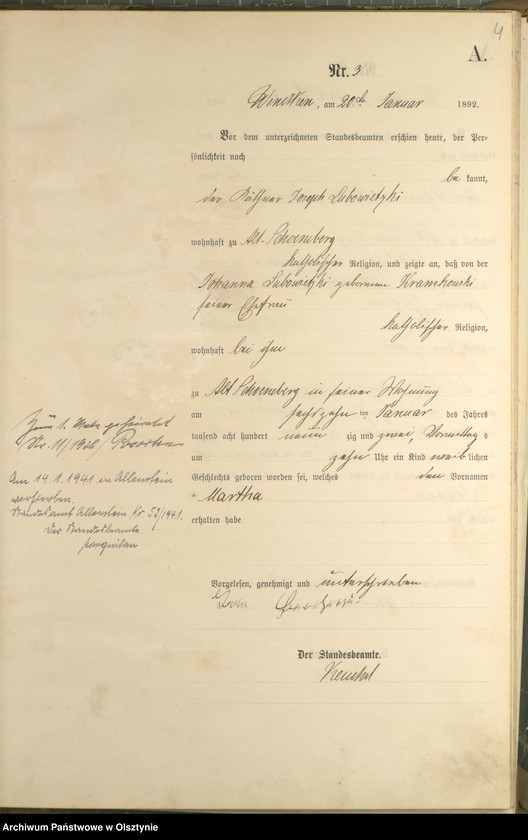 4
A.
Nr. 3
am 20ten Januar 1892.
Vor dem unterzeichneten Standesbeamten erschien heute, der Per-
sönlichkeit nach
be kannt,
der Käthner Joseph Lubowietzki
wohnhaft zu Alt-Schoeneberg
katholischer Religion, und zeigte an, daß von der
Johanna Lubowietzki geborenen Kramkowski
seiner Ehefrau
katholischer Religion,
wohnhaft bei ihm
zu Alt Schoeneberg in seiner Wohnung
am sechszehn ten Januar des Jahres
tausend acht hundert neun zig und zwei, Vormittag s
um zehn Uhr ein Kind weib lichen
Geschlechts geboren worden sei, welches den Vornamen
Martha
erhalten habe
Zum 1. Male geheiratet
Nr. 11/
Am 14.1.1941 in Allenstein
verstorben.
Standesamt Allenstein Nr. 52/1941.
Der Standesbeamte.
Vorgelesen, genehmigt und unterschrieben
Der Standesbeamte.
Archiwum Państwowe w Olsztynie